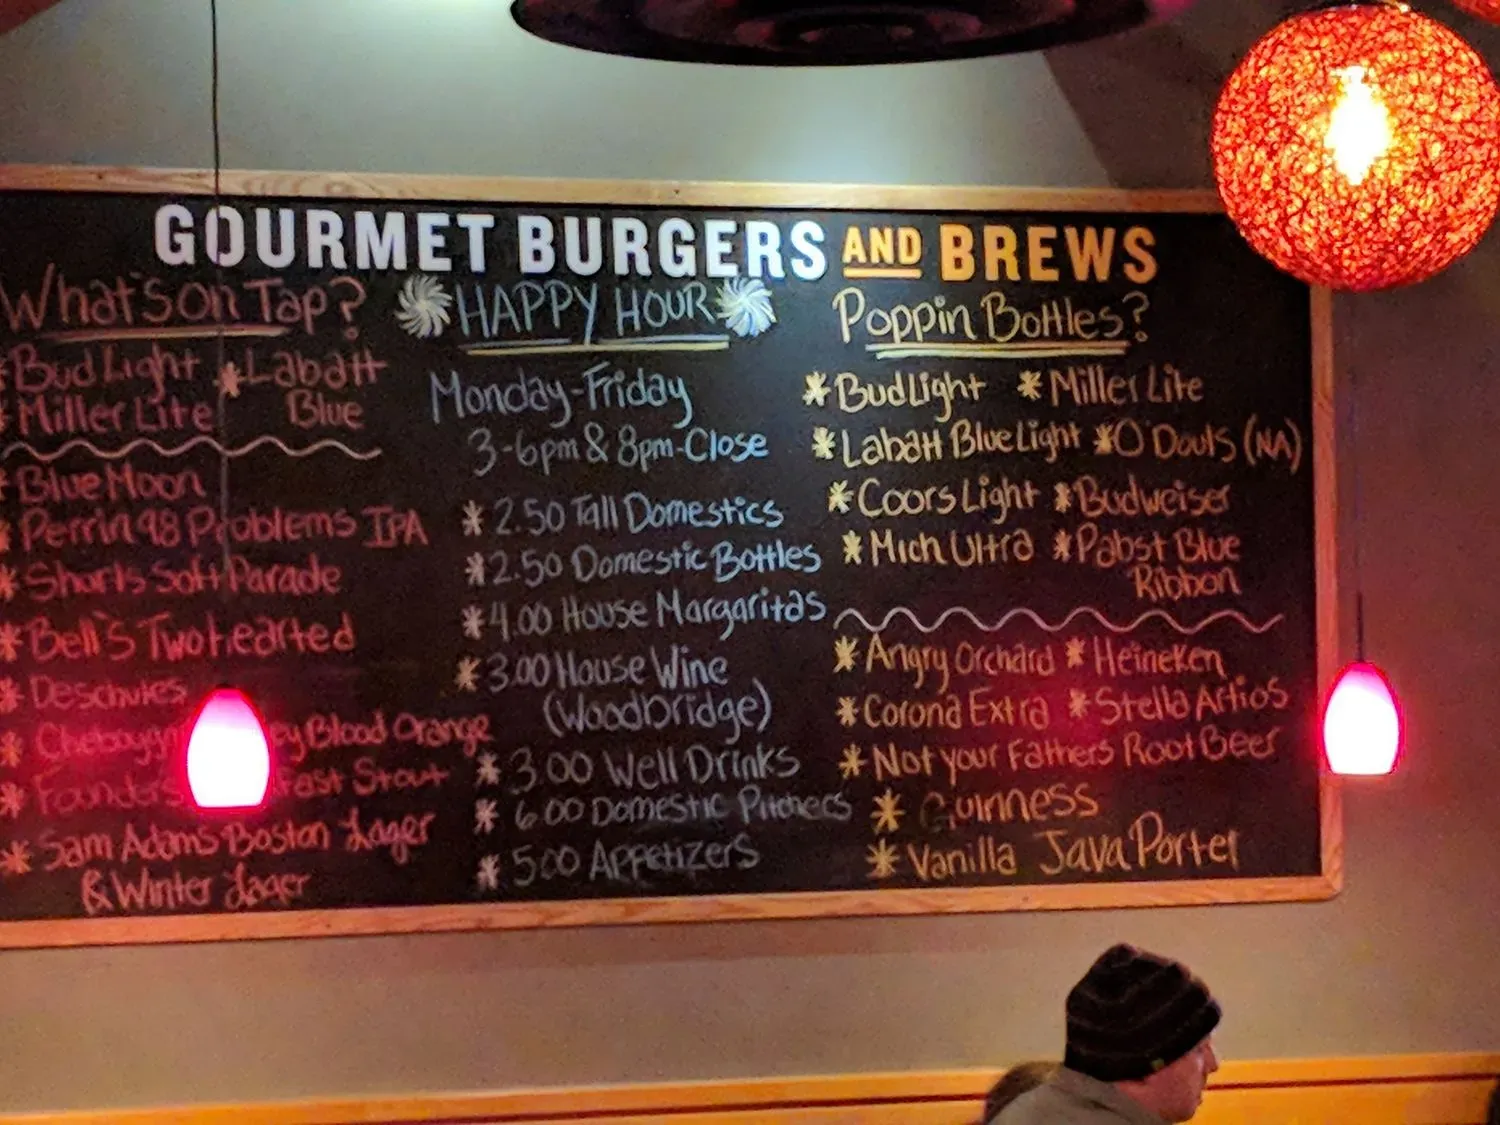 GOURMET BURGERS AND BREWS
What's on Tap?
*Bud Light *Labatt
*Miller Lite Blue
*Blue Moon
*Perrin 98 Problems IPA
*Shorts Soft Parade
*Bell's Two hearted
*Deschutes
* Blood Orange
*Founders Stout
*Sam Adams Boston Lager
& Winter Lager
HAPPY HOUR
Monday-Friday
3-6pm & 8pm-Close
*2.50 Tall Domestics
*2.50 Domestic Bottles
*4.00 House Margaritas
*3.00 House Wine
(Woodbridge)
*3.00 Well Drinks
*6.00 Domestic Pitchers
*5.00 Appetizers
Poppin Bottles?
*Bud Light *Miller Lite
*Labatt Blue Light *O'Douls (NA)
*Coors Light *Budweiser
*Mich Ultra *Pabst Blue
Ribbon
*Angry Orchard *Heineken
*Corona Extra *Stella Artios
*Not your Fathers Root Beer
*Guinness
*Vanilla Java Porter